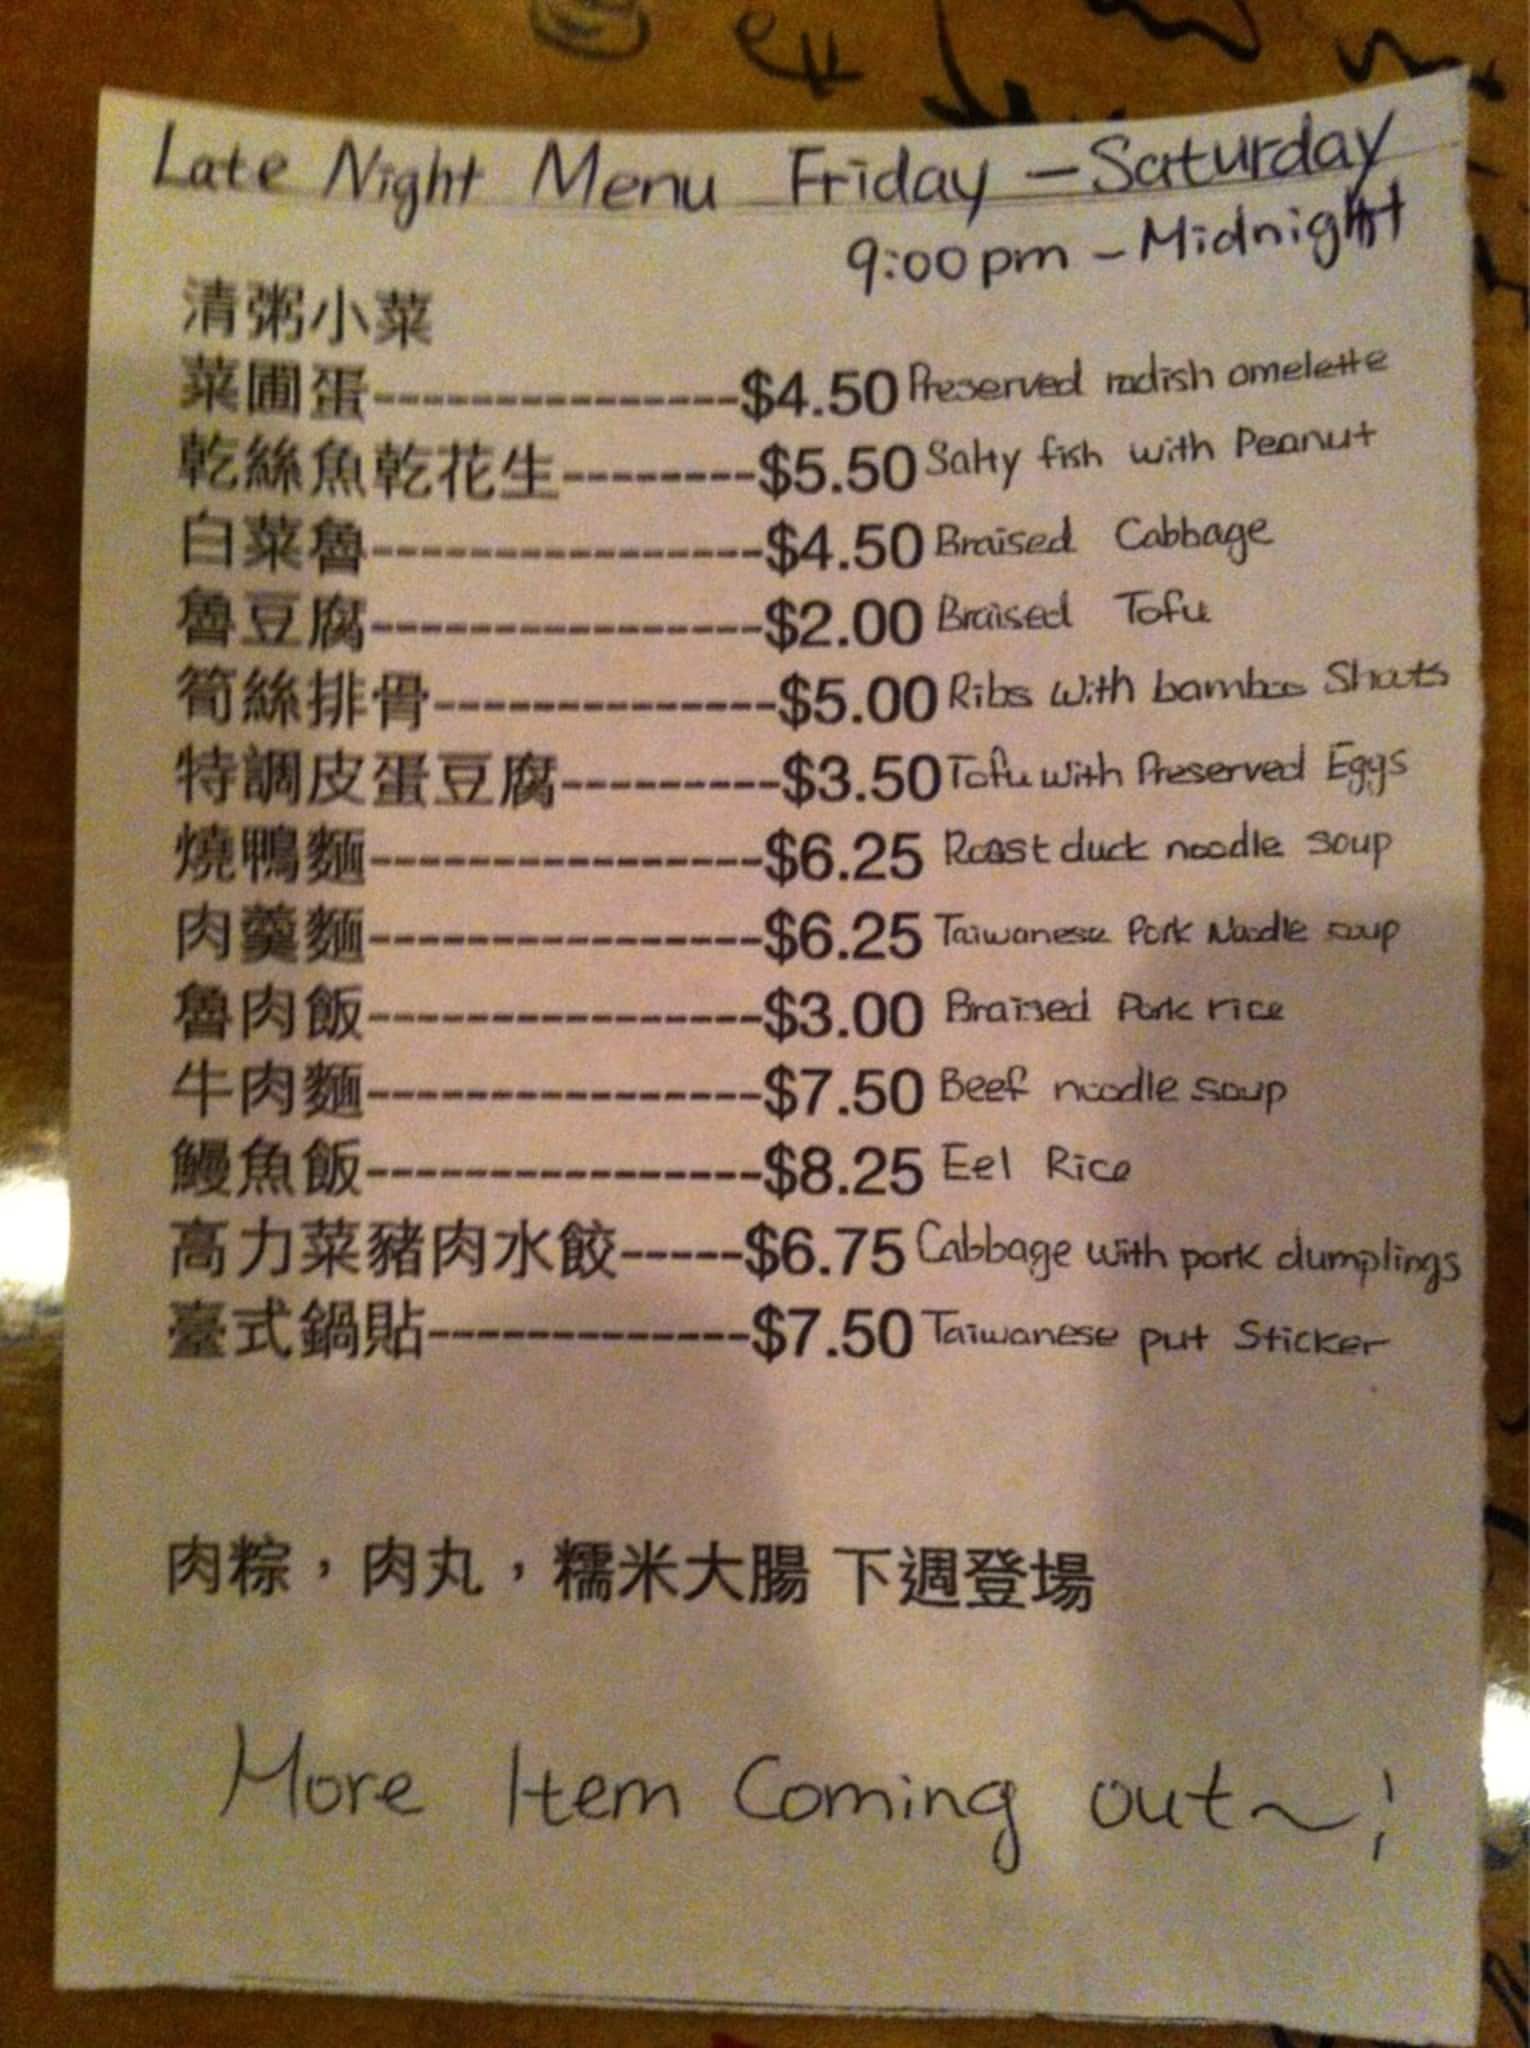 Late Night Menu Friday - Saturday
9:00pm - Midnight
清粥小菜
菜圃蛋---------------$4.50 Preserved radish omelette
乾絲魚乾花生--------$5.50 Salty fish with Peanut
白菜魯----------------$4.50 Braised Cabbage
魯豆腐----------------$2.00 Braised Tofu
筍絲排骨--------------$5.00 Ribs with bamboo Shoots
特調皮蛋豆腐---------$3.50 Tofu with Preserved Eggs
燒鴨麵----------------$6.25 Roast duck noodle soup
肉羹麵----------------$6.25 Taiwanese Pork Noodle soup
魯肉飯----------------$3.00 Braised Pork rice
牛肉麵----------------$7.50 Beef noodle soup
鰻魚飯----------------$8.25 Eel Rice
高力菜豬肉水餃-----$6.75 Cabbage with pork dumplings
臺式鍋貼-------------$7.50 Taiwanese put Sticker
肉粽，肉丸，糯米大腸 下週登場
More Item Coming out~!